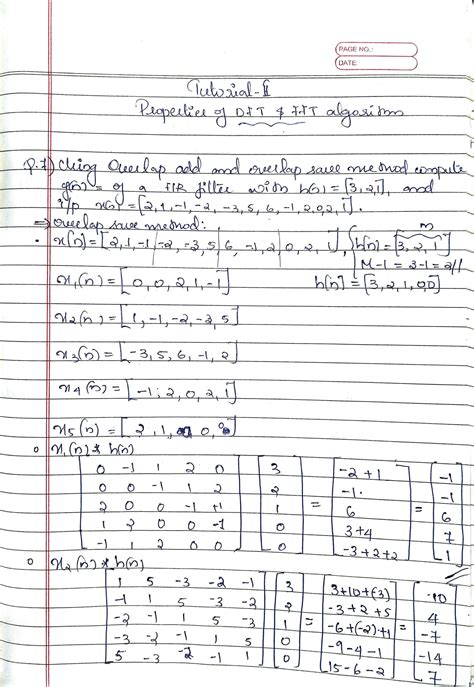 PAGE NO.:
DATE:
Tutorial-II
Properties of DFT & FFT algorithm
Q.7) Using Overlap add and overlap save method compute
y(n) = of a FIR filter with h(n) = [3,2,1], and
i/p x(n) = [2,1,-1,-2,-3,5,6,-1,2,0,2,1].
⇒ overlap save method:
• x[n] = [2,1,-1|-2,-3,5|6,-1,2|0,2,1], h[n] = [3,2,1]
M-1 = 3-1 = 2//
x₁(n) = [0,0,2,1,-1] h[n] = [3,2,1,0,0]
x₂(n) = [1,-1,-2,-3,5]
x₃(n) = [-3,5,6,-1,2]
x₄(n) = [-1,2,0,2,1]
x₅(n) = [2,1, 0, 0]
o x₁(n) * h(n)
0 -1 1 2 0 3 -2+1 -1
0 0 -1 1 2 2 -1. -1
2 0 0 -1 +1 1 = 6 = 6
1 2 0 0 -1 0 3+4 7
-1 1 2 0 0 0 -3+2+2 1
o x₂(n) * h(n)
1 5 -3 -2 -1 3 3+10+(3) -10
-1 1 5 -3 -2 2 -3+2+5 4
-2 -1 1 5 -3 1 = -6+(-2)+1 = -7
-3 -2 -1 1 5 0 -9-4-1 -14
5 -3 -2 -1 1 0 15-6-2 7